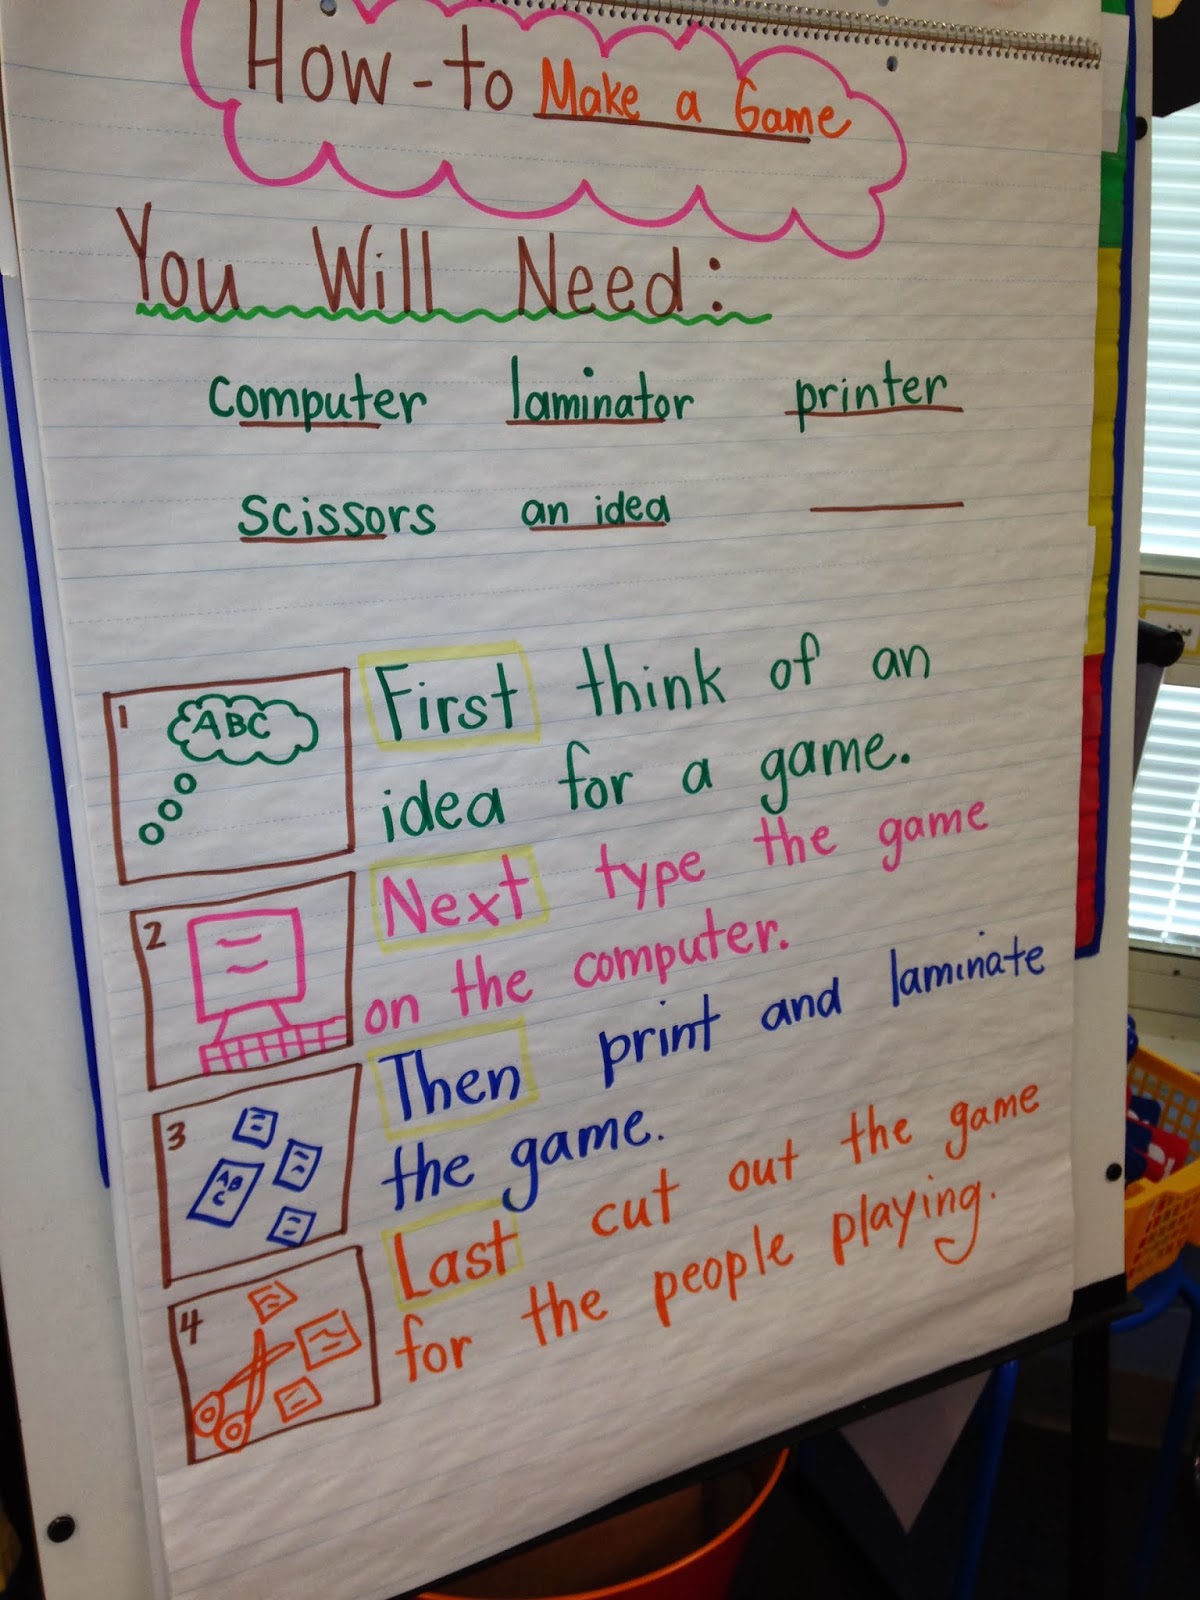 How-to Make a Game
You Will Need:
computer laminator printer
scissors an idea
1
ABC
First think of an
idea for a game.
2
Next type the game
on the computer.
3
ABC
Then print and laminate
the game.
4
Last cut out the game
for the people playing.